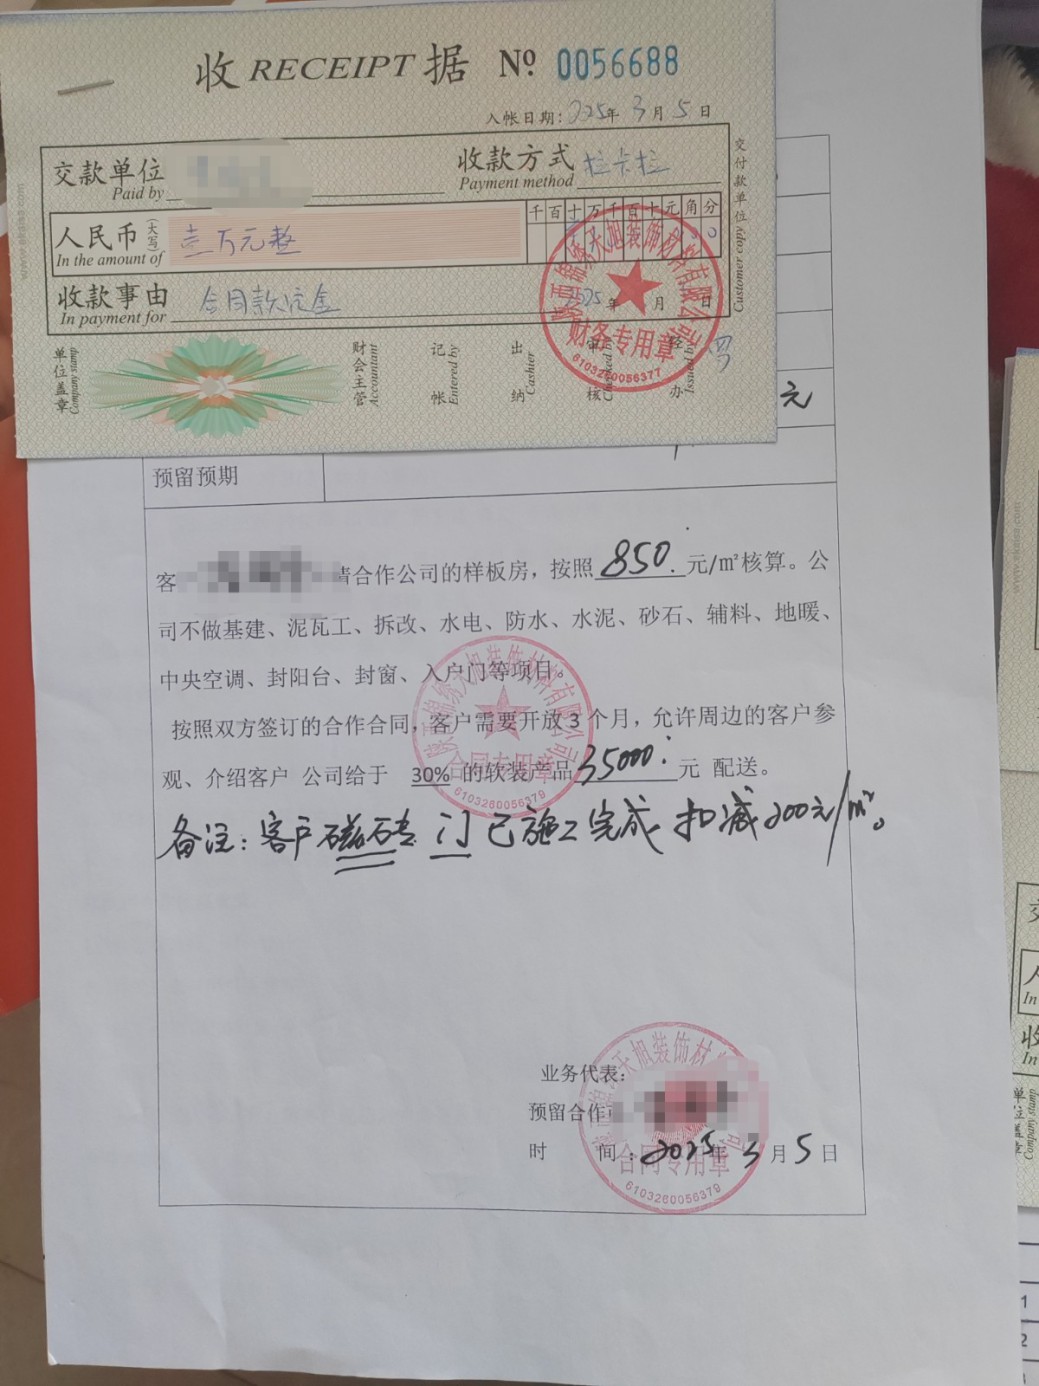 收 RECEIPT 据 Nº 0056688
入帐日期：2025年 3月 5日
交款单位 收款方式 拉卡拉
Paid by Payment method
人民币(大写) 壹万元整 千百十万千百十元角分
In the amount of
收款事由 合同款定金 2025年 月 日
In payment for
交付款单位 Customer copy
www.ekaisa.com
陕西锦绣天旭装饰材料有限公司
财务专用章
6103260056377
单位盖章 Company stamp
财会主管 Accountant
记帐 Entered by
出纳 Cashier
审核 Checked by
经办 Issued by 罗
元
预留预期
客 请合作公司的样板房，按照 850. 元/㎡核算。公
司不做基建、泥瓦工、拆改、水电、防水、水泥、砂石、辅料、地暖、
中央空调、封阳台、封窗、入户门等项目。
按照双方签订的合作合同，客户需要开放 3 个月，允许周边的客户参
观、介绍客户 公司给于 30% 的软装产品 35000. 元 配送。
陕西锦绣天旭装饰材料有限公司
合同专用章
6103260056379
备注：客户磁砖 门已施工完成 扣减200元/m²。
业务代表：
预留合作
时 间：2025年 3月5日
合同专用章
6103260056379